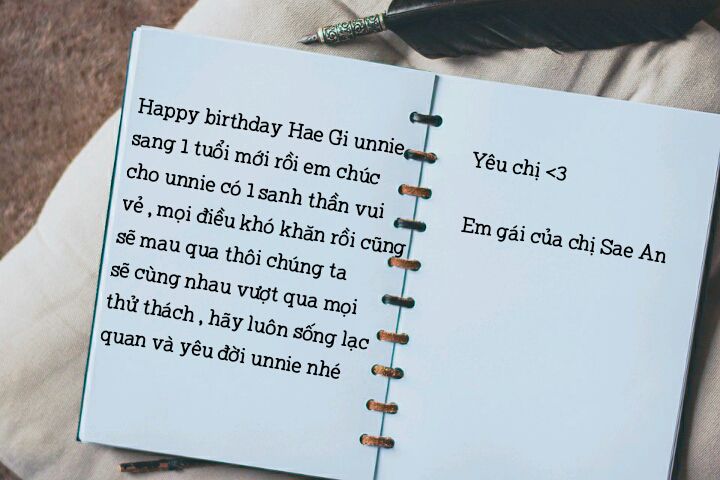 Happy birthday Hae Gi unnie
sang 1 tuổi mới rồi em chúc
cho unnie có 1 sanh thần vui
vẻ , mọi điều khó khăn rồi cũng
sẽ mau qua thôi chúng ta
sẽ cùng nhau vượt qua mọi
thử thách , hãy luôn sống lạc
quan và yêu đời unnie nhé
Yêu chị <3
Em gái của chị Sae An